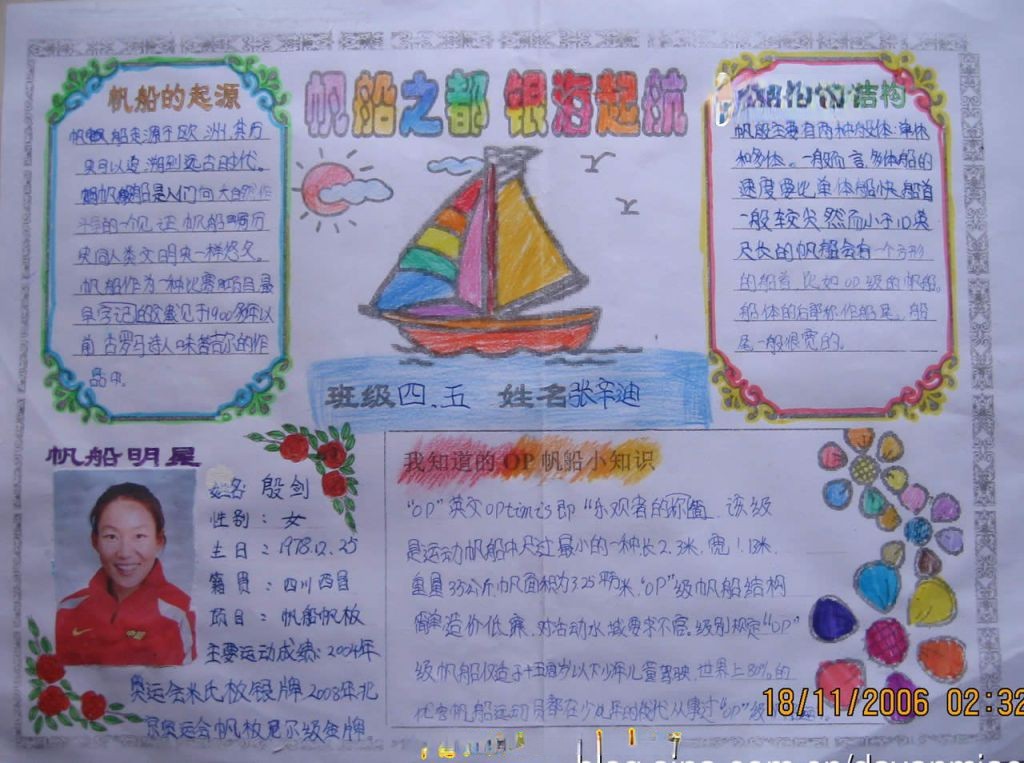 帆船之都 银海起航
帆船的起源
船起源于欧洲,其历
史可以追溯到远古时代。
船是人们向大自然作
斗争的一个见证,帆船历
史同人类文明史一样悠久。
帆船作为一种比赛项目,最
早的文献见于1900多年以
前古罗马诗人味吉尔的作
品中。
结构
帆船主要有两种船体:单体
和多体。一般而言,多体船的
速度要比单体船快,船首
一般较尖,然而小于10英
尺长的帆船会有一个方形
的船首,比如OP级的帆船。
船体的后部称作船尾。船
尾一般很宽的。
班级四、五 姓名张辛迪
帆船明星
姓名 殷剑
性别:女
生日:1978.12.25
籍贯:四川西昌
项目:帆船帆板
主要运动成绩:2004年
奥运会米氏板银牌2008年北
京奥运会帆板尼尔级金牌
我知道的OP帆船小知识
"OP"英文 即"乐观者的 该级
是运动帆船中尺寸最小的一种长2.3米,宽1.13米,
重量35公斤帆面积为3.25平方米,"OP"级帆船结构
简单造价低廉,对活动水域要求不高。级别规定"OP"
级帆船仅适于十五岁以下少年儿童驾驶,世界上80%的
优秀帆船运动员都在少年时代从事过"OP"级
18/11/2006 02:32